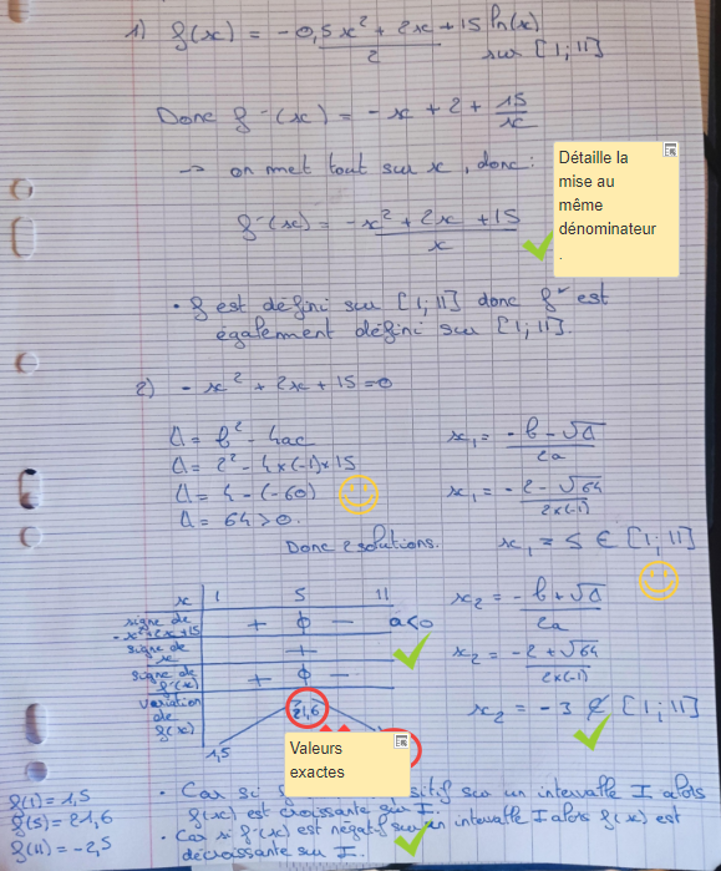 1) f(x) = -0,5x² + 2x + 15 ln(x)
2
sur [1; 11]
Donc f'(x) = -x + 2 + 15/x
→ on met tout sur x, donc:
Détaille la
mise au
même
dénominateur
.
f'(x) = -x² + 2x + 15
x
• f est défini sur [1; 11] donc f' est
également défini sur [1; 11].
2) -x² + 2x + 15 = 0
Δ = b² - 4ac
Δ = 2² - 4×(-1)×15
Δ = 4 - (-60)
Δ = 64 > 0.
Donc 2 solutions.
x₁ = -b - √Δ
2a
x₁ = -2 - √64
2×(-1)
x₁ = 5 ∈ [1; 11]
x₂ = -b + √Δ
2a
x₂ = -2 + √64
2×(-1)
x₂ = -3 ∉ [1; 11]
x 1 5 11
signe de
-x²+2x+15 + 0 - a<0
signe de
x +
signe de
f'(x) + 0 -
variation
de
f(x)
21,6
1,5
Valeurs
exactes
f(1) = 1,5
f(5) = 21,6
f(11) = -2,5
• Car si sitif sur un intervalle I alors
f(x) est croissante sur I.
• Car si f'(x) est négatif sur un intervalle I alors f(x) est
décroissante sur I.